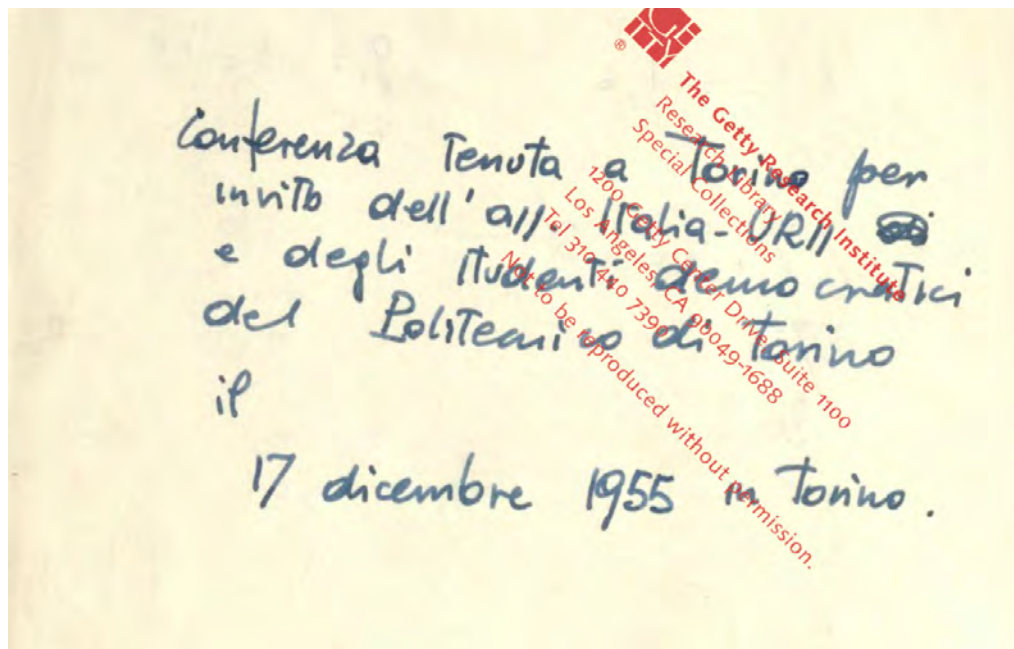 Conferenza Tenuta a Torino per
invito dell'ass. Italia-URSS
e degli studenti democratici
del Politecnico di Torino
il
17 dicembre 1955 in Torino.
GE
TTY
®
The Getty Research Institute
Research Library
Special Collections
1200 Getty Center Drive, Suite 1100
Los Angeles, CA 90049-1688
Tel 310 440 7390
Not to be reproduced without permission.